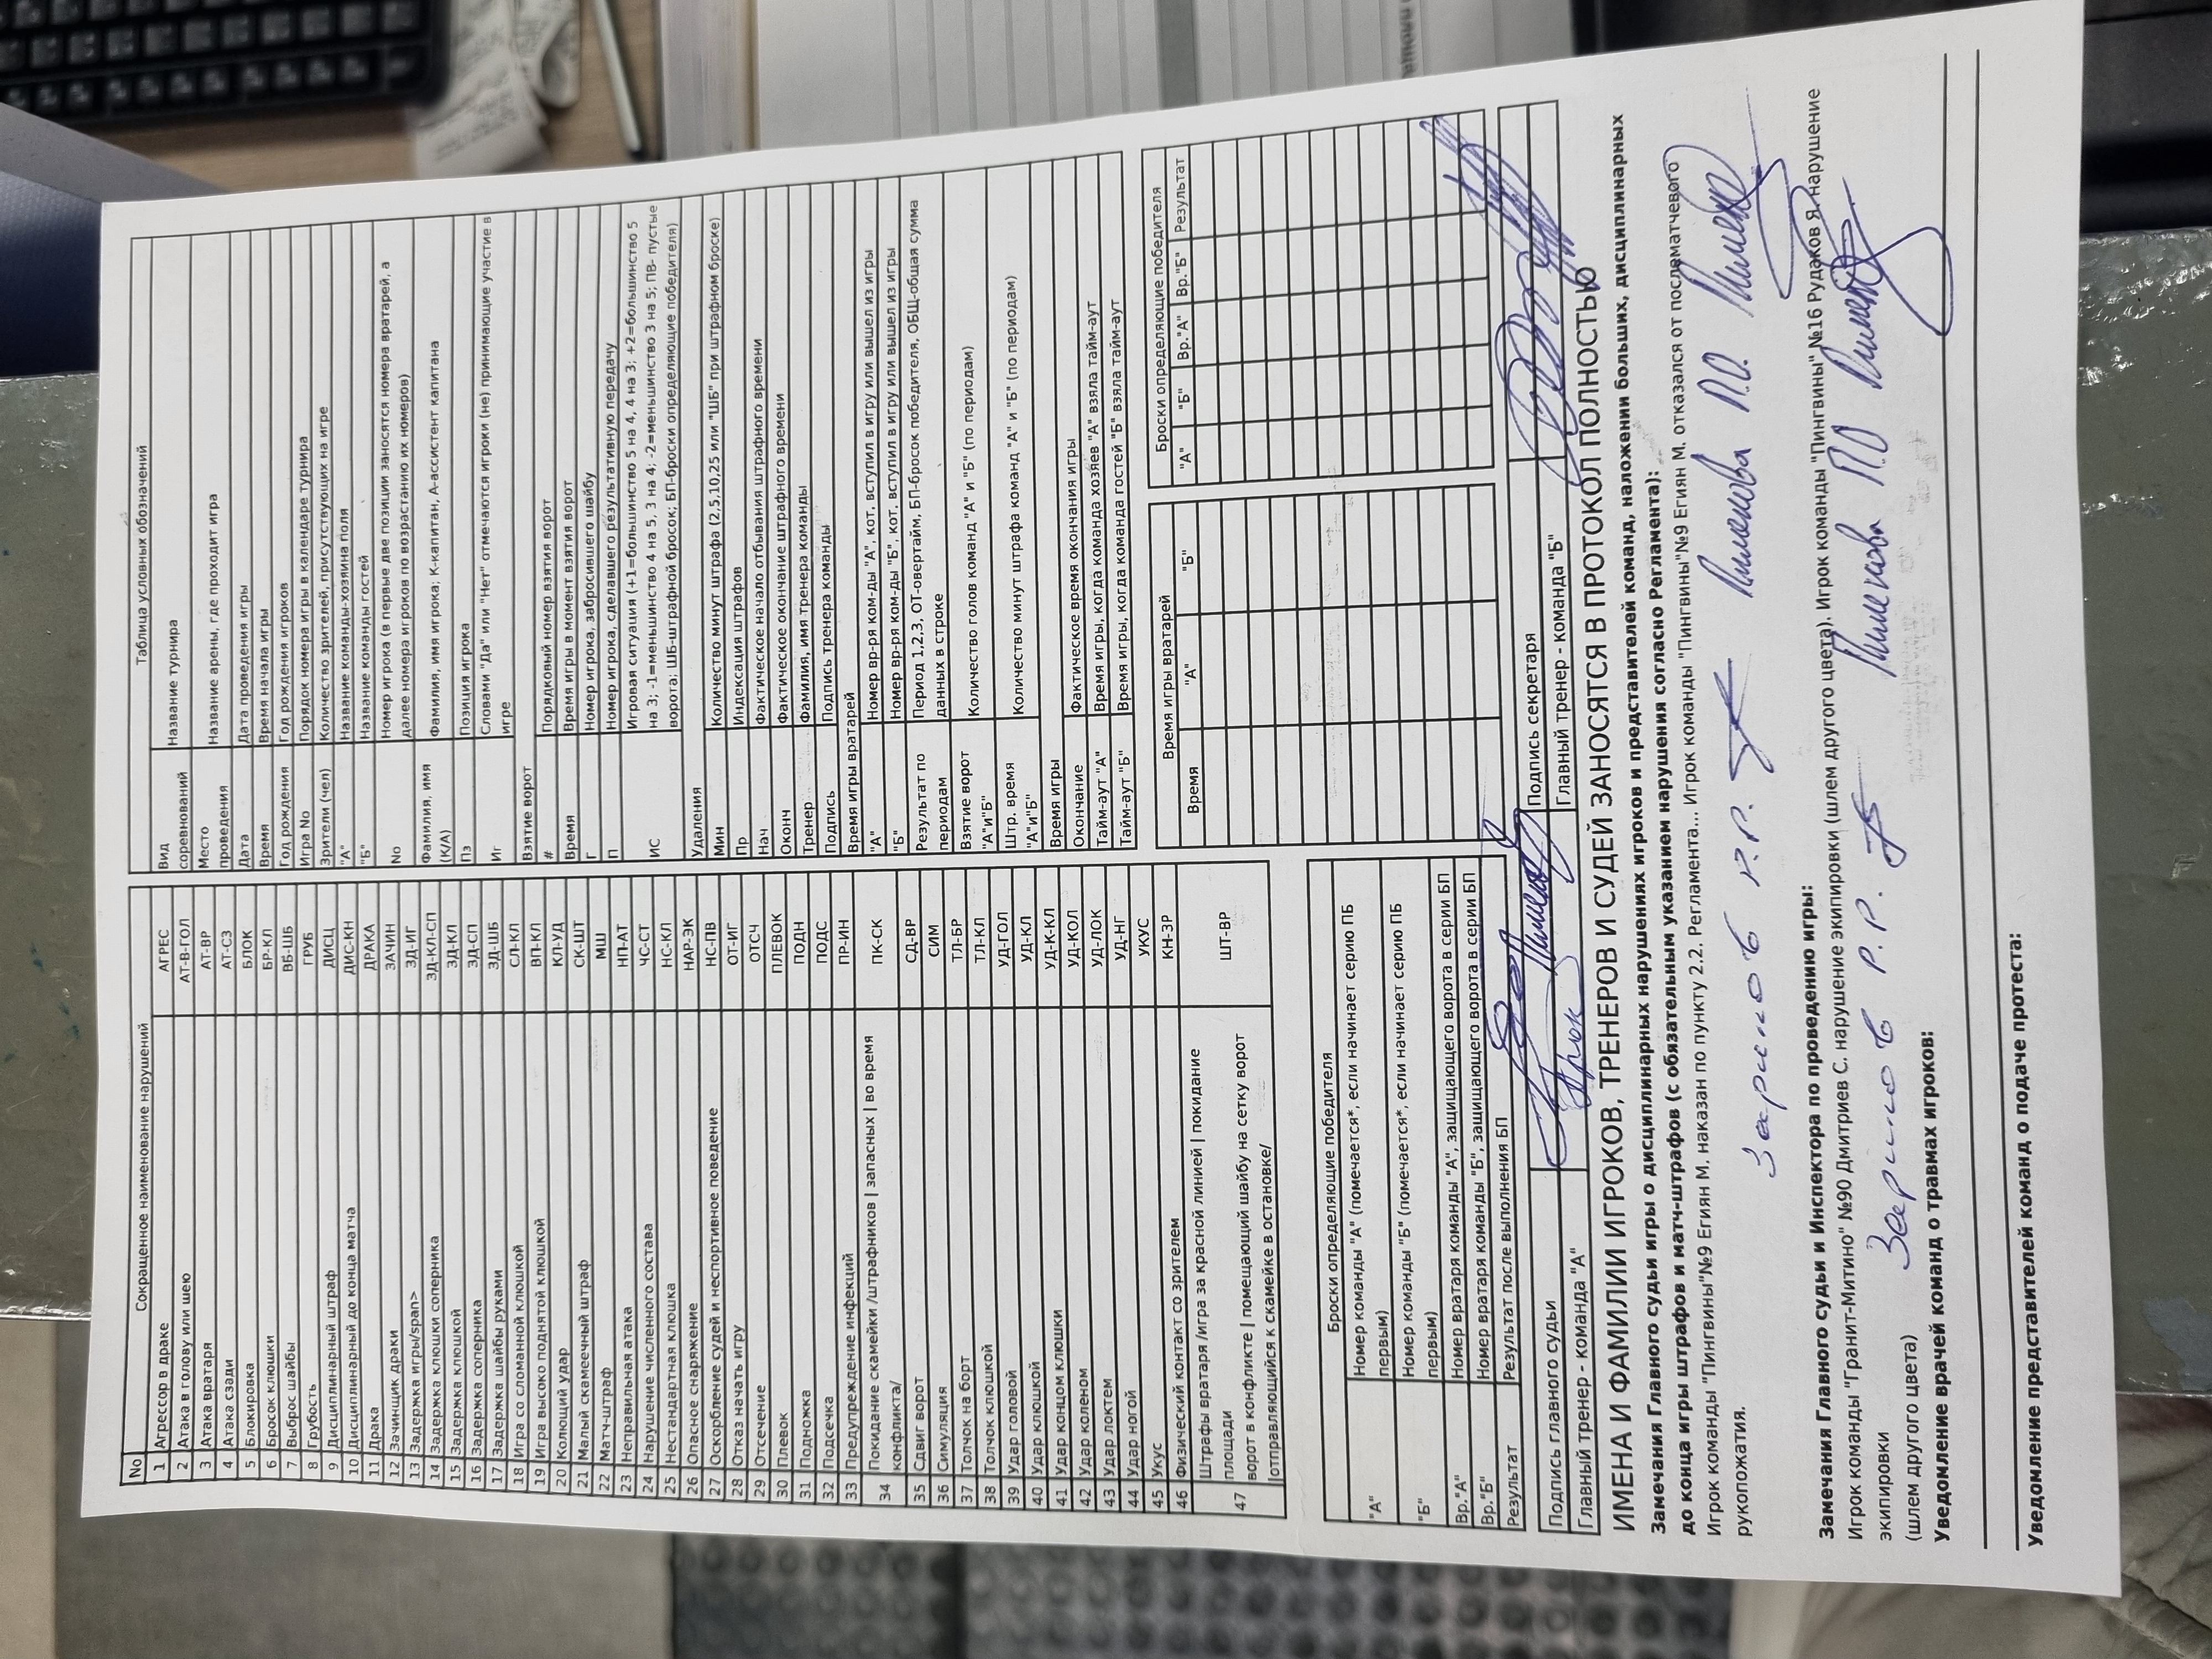 Сокращенное наименование нарушений
No
1 Агрессор в драке АГРЕС
2 Атака в голову или шею АТ-В-ГОЛ
3 Атака вратаря АТ-ВР
4 Атака сзади АТ-СЗ
5 Блокировка БЛОК
6 Бросок клюшки БР-КЛ
7 Выброс шайбы ВБ-ШБ
8 Грубость ГРУБ
9 Дисциплинарный штраф ДИСЦ
10 Дисциплинарный до конца матча ДИС-КН
11 Драка ДРАКА
12 Зачинщик драки ЗАЧИН
13 Задержка игры/span> ЗД-ИГ
14 Задержка клюшки соперника ЗД-КЛ-СП
15 Задержка клюшкой ЗД-КЛ
16 Задержка соперника ЗД-СП
17 Задержка шайбы руками ЗД-ШБ
18 Игра со сломанной клюшкой СЛ-КЛ
19 Игра высоко поднятой клюшкой ВП-КЛ
20 Колющий удар КЛ-УД
21 Малый скамеечный штраф СК-ШТ
22 Матч-штраф МШ
23 Неправильная атака НП-АТ
24 Нарушение численного состава ЧС-СТ
25 Нестандартная клюшка НС-КЛ
26 Опасное снаряжение НАР-ЭК
27 Оскорбление судей и неспортивное поведение НС-ПВ
28 Отказ начать игру ОТ-ИГ
29 Отсечение ОТСЧ
30 Плевок ПЛЕВОК
31 Подножка ПОДН
32 Подсечка ПОДС
33 Предупреждение инфекций ПР-ИН
34 Покидание скамейки /штрафников | запасных | во время
конфликта/ ПК-СК
35 Сдвиг ворот СД-ВР
36 Симуляция СИМ
37 Толчок на борт ТЛ-БР
38 Толчок клюшкой ТЛ-КЛ
39 Удар головой УД-ГОЛ
40 Удар клюшкой УД-КЛ
41 Удар концом клюшки УД-К-КЛ
42 Удар коленом УД-КОЛ
43 Удар локтем УД-ЛОК
44 Удар ногой УД-НГ
45 Укус УКУС
46 Физический контакт со зрителем КН-ЗР
47 Штрафы вратаря /игра за красной линией | покидание
площади
ворот в конфликте | помещающий шайбу на сетку ворот
|отправляющийся к скамейке в остановке/ ШТ-ВР
Таблица условных обозначений
Вид
соревнований Название турнира
Место
проведения Название арены, где проходит игра
Дата Дата проведения игры
Время Время начала игры
Год рождения Год рождения игроков
Игра No Порядок номера игры в календаре турнира
Зрители (чел) Количество зрителей, присутствующих на игре
"А" Название команды-хозяина поля
"Б" Название команды гостей
No Номер игрока (в первые две позиции заносятся номера вратарей, а
далее номера игроков по возрастанию их номеров)
Фамилия, имя
(К/А) Фамилия, имя игрока; К-капитан, А-ассистент капитана
Пз Позиция игрока
Иг Словами "Да" или "Нет" отмечаются игроки (не) принимающие участие в
игре
Взятие ворот
# Порядковый номер взятия ворот
Время Время игры в момент взятия ворот
Г Номер игрока, забросившего шайбу
П Номер игрока, сделавшего результативную передачу
ИС Игровая ситуация (+1=большинство 5 на 4, 4 на 3; +2=большинство 5
на 3; -1=меньшинство 4 на 5, 3 на 4; -2=меньшинство 3 на 5; ПВ- пустые
ворота: ШБ-штрафной бросок; БП-броски определяющие победителя)
Удаления
Мин Количество минут штрафа (2,5,10,25 или "ШБ" при штрафном броске)
Пр Индексация штрафов
Нач Фактическое начало отбывания штрафного времени
Оконч Фактическое окончание штрафного времени
Тренер Фамилия, имя тренера команды
Подпись Подпись тренера команды
Время игры вратарей
"А" Номер вр-ря ком-ды "А", кот. вступил в игру или вышел из игры
"Б" Номер вр-ря ком-ды "Б", кот. вступил в игру или вышел из игры
Результат по
периодам Период 1,2,3, ОТ-овертайм, БП-бросок победителя, ОБЩ-общая сумма
данных в строке
Взятие ворот
"А"и"Б" Количество голов команд "А" и "Б" (по периодам)
Штр. время
"А"и"Б" Количество минут штрафа команд "А" и "Б" (по периодам)
Время игры
Окончание Фактическое время окончания игры
Тайм-аут "А" Время игры, когда команда хозяев "А" взяла тайм-аут
Тайм-аут "Б" Время игры, когда команда гостей "Б" взяла тайм-аут
Броски определяющие победителя
"А" Номер команды "А" (помечается*, если начинает серию ПБ
первым)
"Б" Номер команды "Б" (помечается*, если начинает серию ПБ
первым)
Вр."А" Номер вратаря команды "А", защищающего ворота в серии БП
Вр."Б" Номер вратаря команды "Б", защищающего ворота в серии БП
Результат Результат после выполнения БП
Время игры вратарей
Время "А" "Б"
Броски определяющие победителя
"А" "Б" Вр."А" Вр."Б" Результат
Подпись главного судьи Подпись секретаря
Главный тренер - команда "А" Главный тренер - команда "Б"
ИМЕНА И ФАМИЛИИ ИГРОКОВ, ТРЕНЕРОВ И СУДЕЙ ЗАНОСЯТСЯ В ПРОТОКОЛ ПОЛНОСТЬЮ
Замечания Главного судьи игры о дисциплинарных нарушениях игроков и представителей команд, наложении больших, дисциплинарных
до конца игры штрафов и матч-штрафов (с обязательным указанием нарушения согласно Регламента):
Игрок команды "Пингвины"№9 Егиян М. наказан по пункту 2.2. Регламента... Игрок команды "Пингвины"№9 Егиян М. отказался от послематчевого
рукопожатия.
Зарипов Р.Р.
Замечания Главного судьи и Инспектора по проведению игры:
Игрок команды "Гранит-Митино" №90 Дмитриев С. нарушение экипировки (шлем другого цвета). Игрок команды "Пингвины" №16 Рудаков Я. нарушение
экипировки
(шлем другого цвета)
Зарипов Р.Р.
Уведомление врачей команд о травмах игроков:
Уведомление представителей команд о подаче протеста: